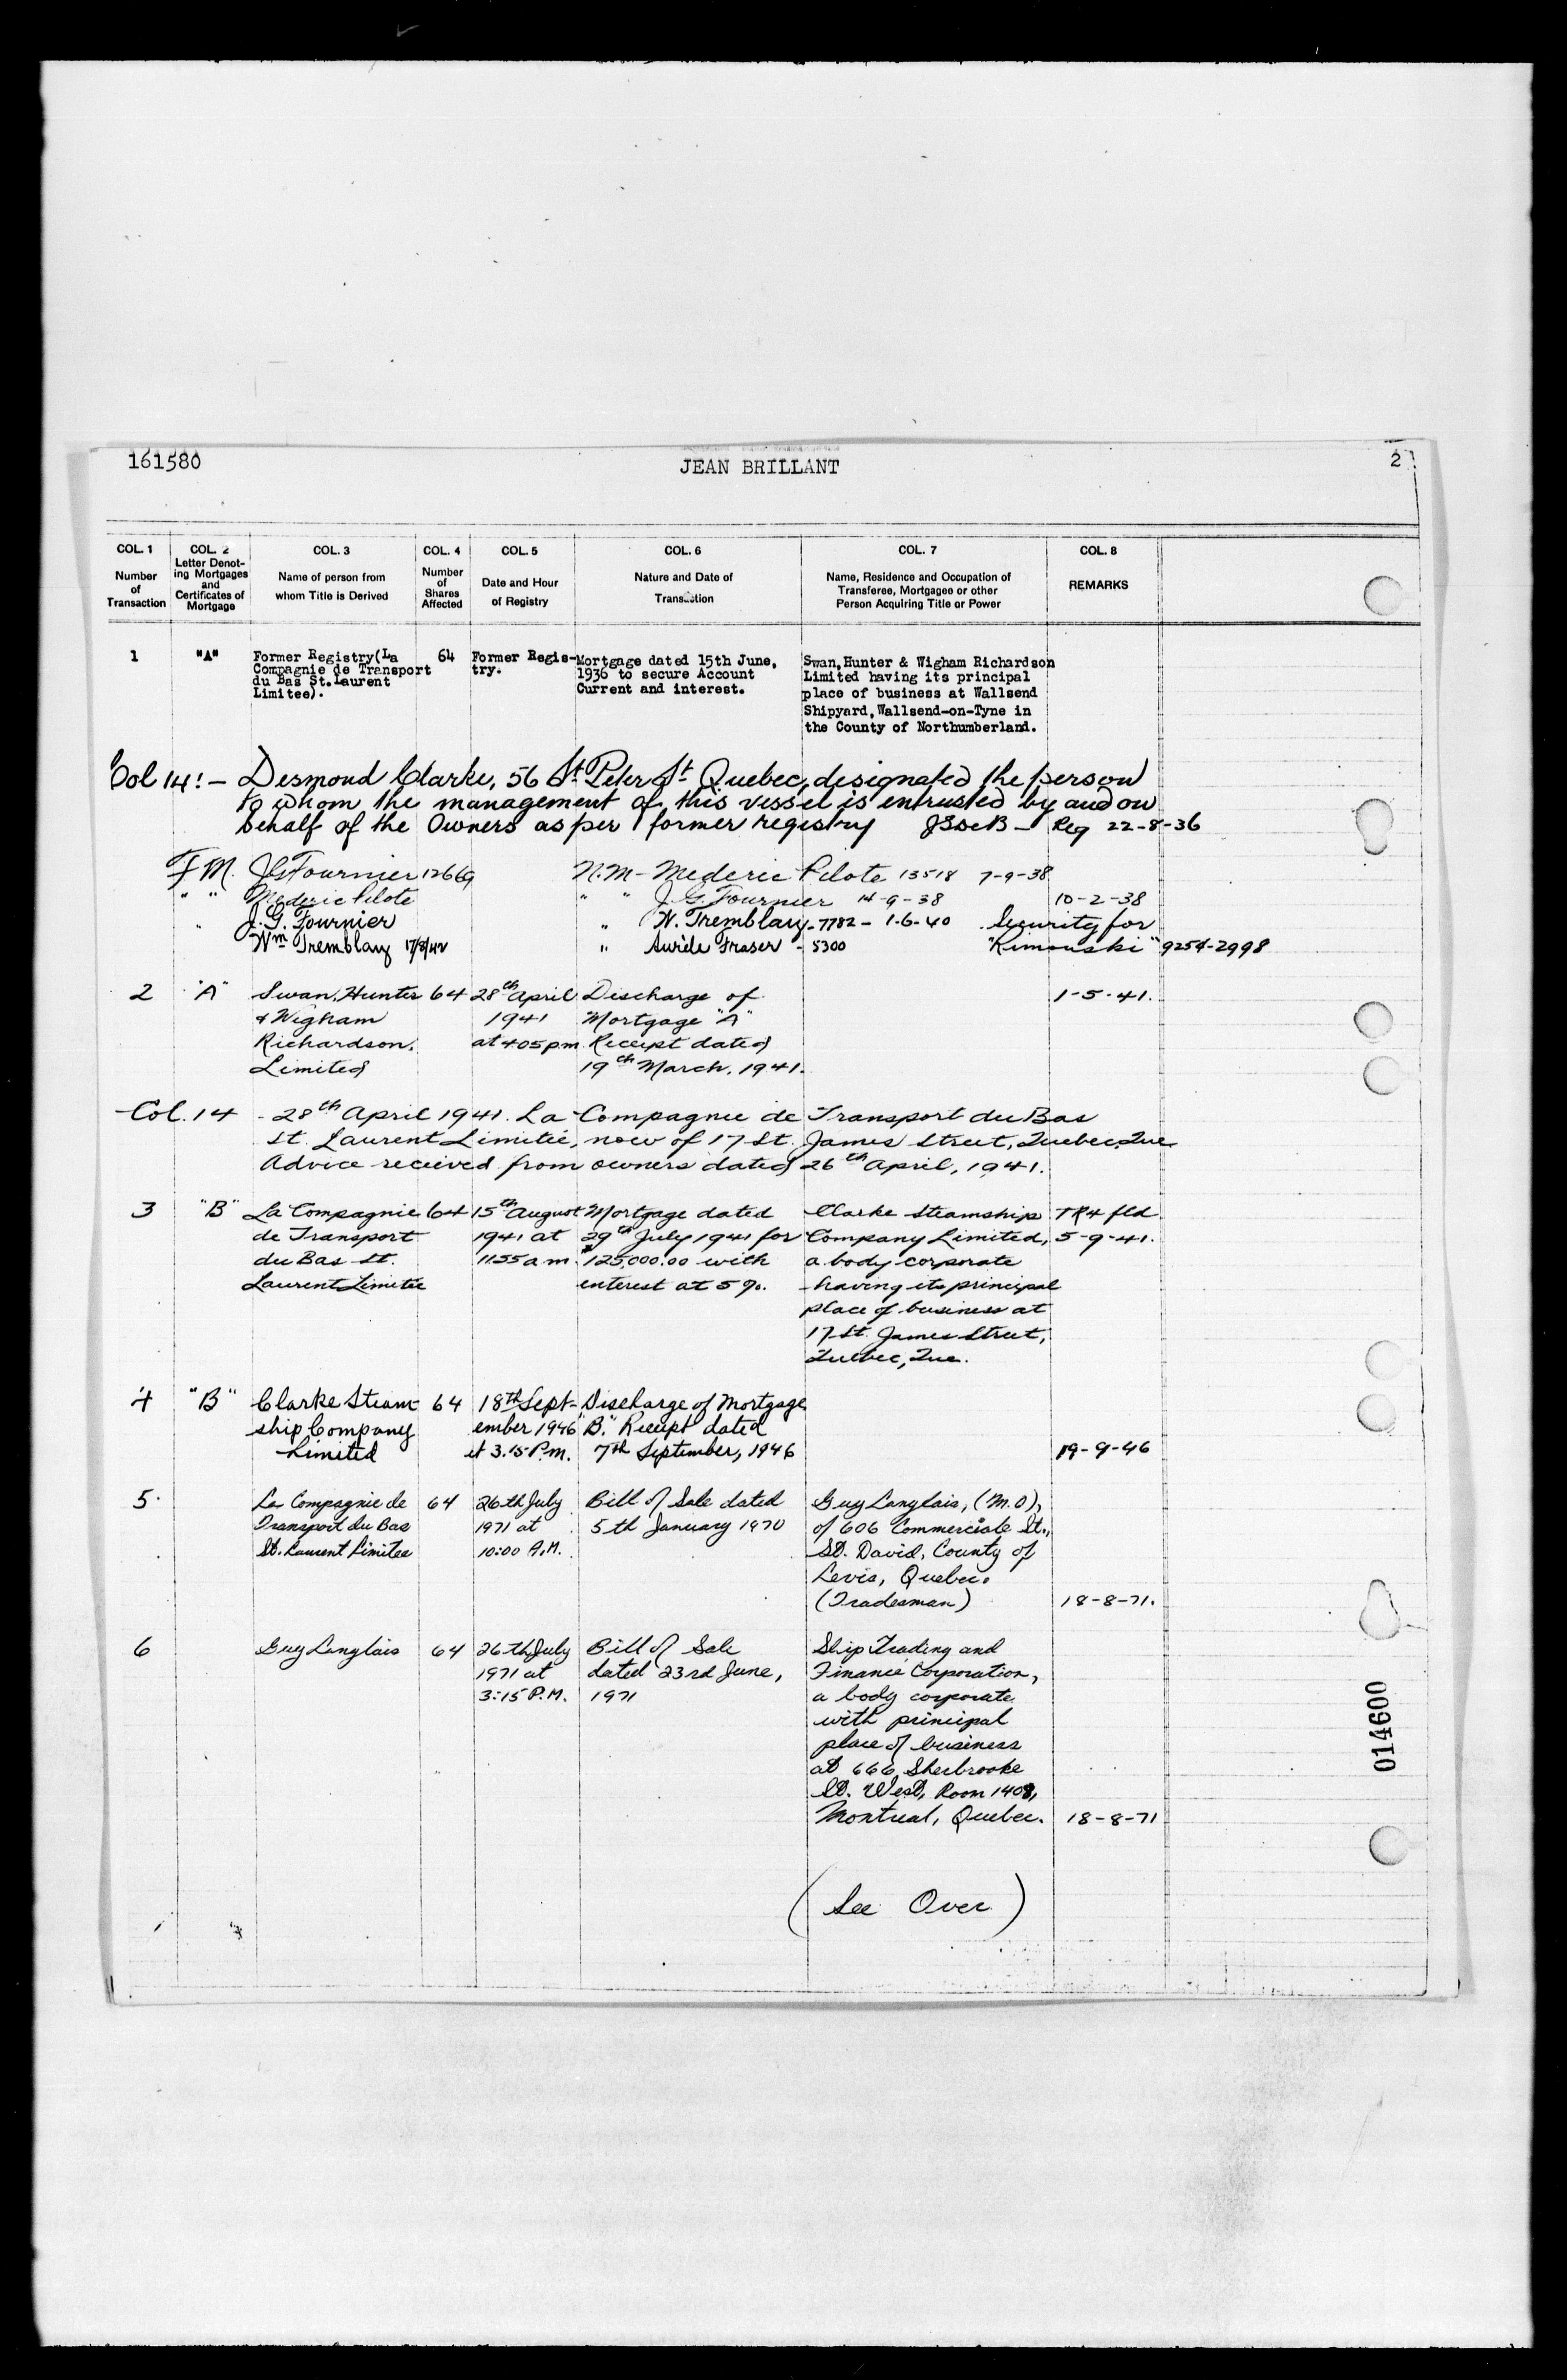 161580 JEAN BRILLANT 2
COL. 1 COL. 2 COL. 3 COL. 4 COL. 5 COL. 6 COL. 7 COL. 8
Number of Transaction
Letter Denoting Mortgages and Certificates of Mortgage
Name of person from whom Title is Derived
Number of Shares Affected
Date and Hour of Registry
Nature and Date of Transaction
Name, Residence and Occupation of Transferee, Mortgagee or other Person Acquiring Title or Power
REMARKS
1 "A"
Former Registry(La
Compagnie de Transport
du Bas St.Laurent
Limitee).
64
Former Regis-
try.
Mortgage dated 15th June,
1936 to secure Account
Current and interest.
Swan,Hunter & Wigham Richardson
Limited having its principal
place of business at Wallsend
Shipyard,Wallsend-on-Tyne in
the County of Northumberland.
Col 14:- Desmond Clarke, 56 St Peter St Quebec, designated the person
to whom the management of this vessel is entrusted by and on
behalf of the Owners as per former registry Reg 22-8-36
F M. J G Fournier 12669 N.M- Mederic Pilote 13518 7-9-38
" " Mederic Pilote " " J. G. Fournier 14-9-38 10-2-38
" J. G. Fournier " W. Tremblay - 7782 - 1-6-40 Security for
Wm Tremblay 17/8/42 " Aurèle Fraser - 5300 "Rimouski" 9254-2998
2 "A"
Swan, Hunter
& Wigham
Richardson.
Limited
64
28th April
1941
at 4 05 p m
Discharge of
Mortgage "A"
Receipt dated
19th March, 1941.
1-5-41.
Col. 14 - 28th April 1941. La Compagnie de Transport du Bas
St. Laurent Limitée, now of 17 St. James Street, Quebec, Que
Advice recieved from owners dated 26th April, 1941.
3 "B"
La Compagnie
de Transport
du Bas St.
Laurent Limitée
64
15th August
1941 at
11.55 a m
Mortgage dated
29th July 1941 for
$125,000.00 with
interest at 5%.
Clarke Steamship
Company Limited,
a body corporate
having its principal
place of business at
17 St. James Street,
Quebec, Que.
TR4 fld
5-9-41.
4 "B"
Clarke Steam
ship Company
Limited
64
18th Sept-
ember 1946
at 3.15 P.M.
Discharge of Mortgage
"B." Receipt dated
7th September, 1946
19-9-46
5.
La Compagnie de
Transport du Bas
St. Laurent Limitee
64
26th July
1971 at
10:00 A.M.
Bill of Sale dated
5th January 1970
Guy Langlais, (M.O),
of 606 Commerciale St.,
St. David, County of
Levis, Quebec.
(Tradesman)
18-8-71.
6
Guy Langlais
64
26th July
1971 at
3:15 P.M.
Bill of Sale
dated 23rd June,
1971
Ship Trading and
Finance Corporation,
a body corporate
with principal
place of business
at 666 Sherbrooke
St. West, Room 1408,
Montreal, Quebec.
18-8-71
(See Over)
014600